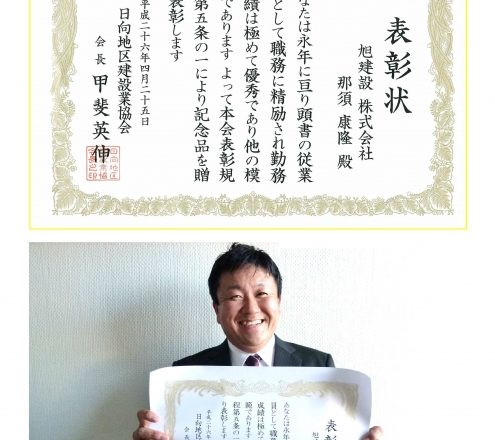 表彰状
旭建設 株式会社
那須 康隆 殿
なたは永年に亘り頭書の従業
として職務に精励され勤務
績は極めて優秀であり他の模
であります よって本会表彰規
第五条の一により記念品を贈
表彰します
平成二十六年四月二十五日
日向地区建設業協会
会長 甲斐英伸
表彰
あなたは永年
員として職務
成績は極めて
範であります
程第五条の一
り表彰します
平成二十六年
日向地区
会長